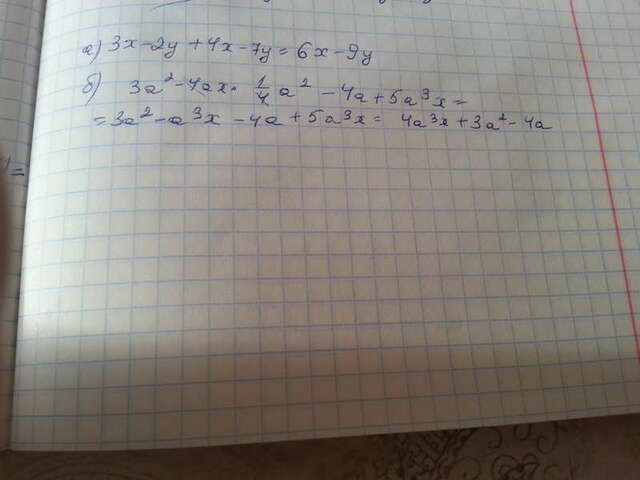 а) 3x-2y+4x-7y=6x-9y
б) 3a²-4ax·1/4a²-4a+5a³x=
=3a²-a³x-4a+5a³x=4a³x+3a²-4a